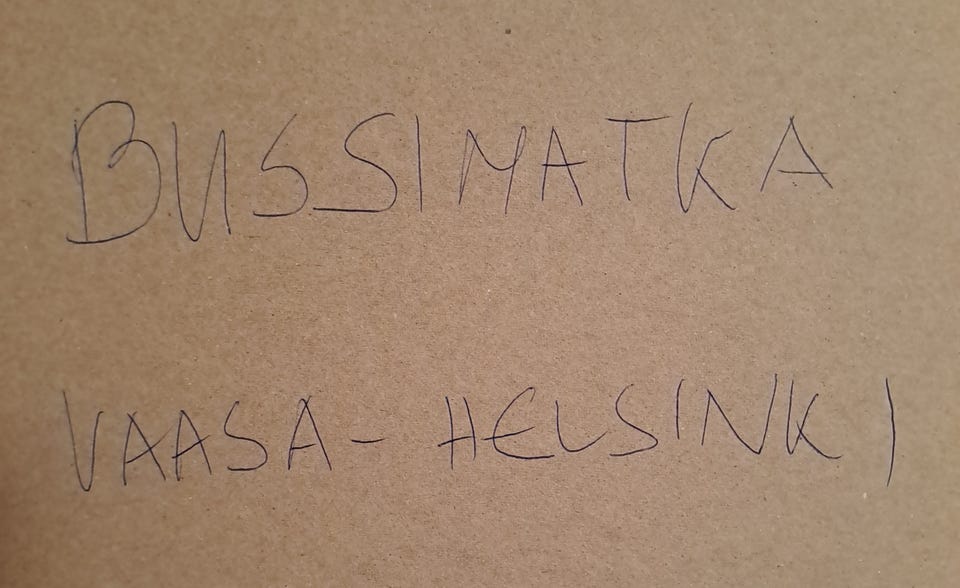 BUSSIMATKA
VAASA - HELSINKI